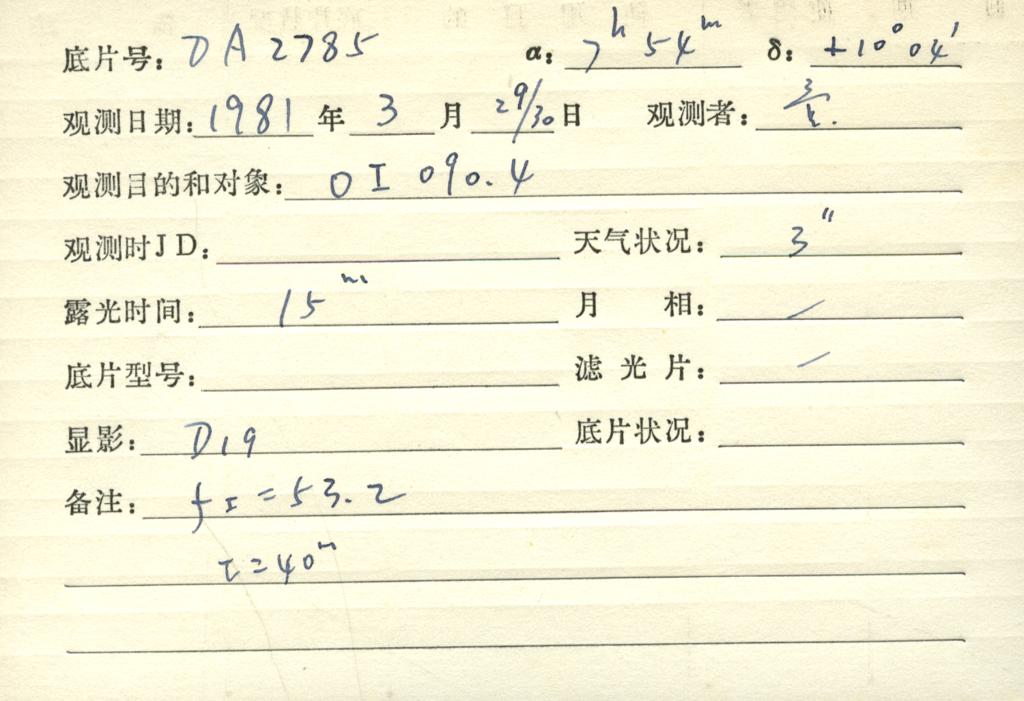 底片号: DA2785 α: 7h 54m δ: +10° 04′
观测日期: 1981 年 3 月 29/30 日 观测者:
观测目的和对象: OI 090.4
观测时JD: 天气状况: 3″
露光时间: 15m 月 相: /
底片型号: 滤光片: /
显影: D19 底片状况:
备注: fI = 53.2
τ = 40m